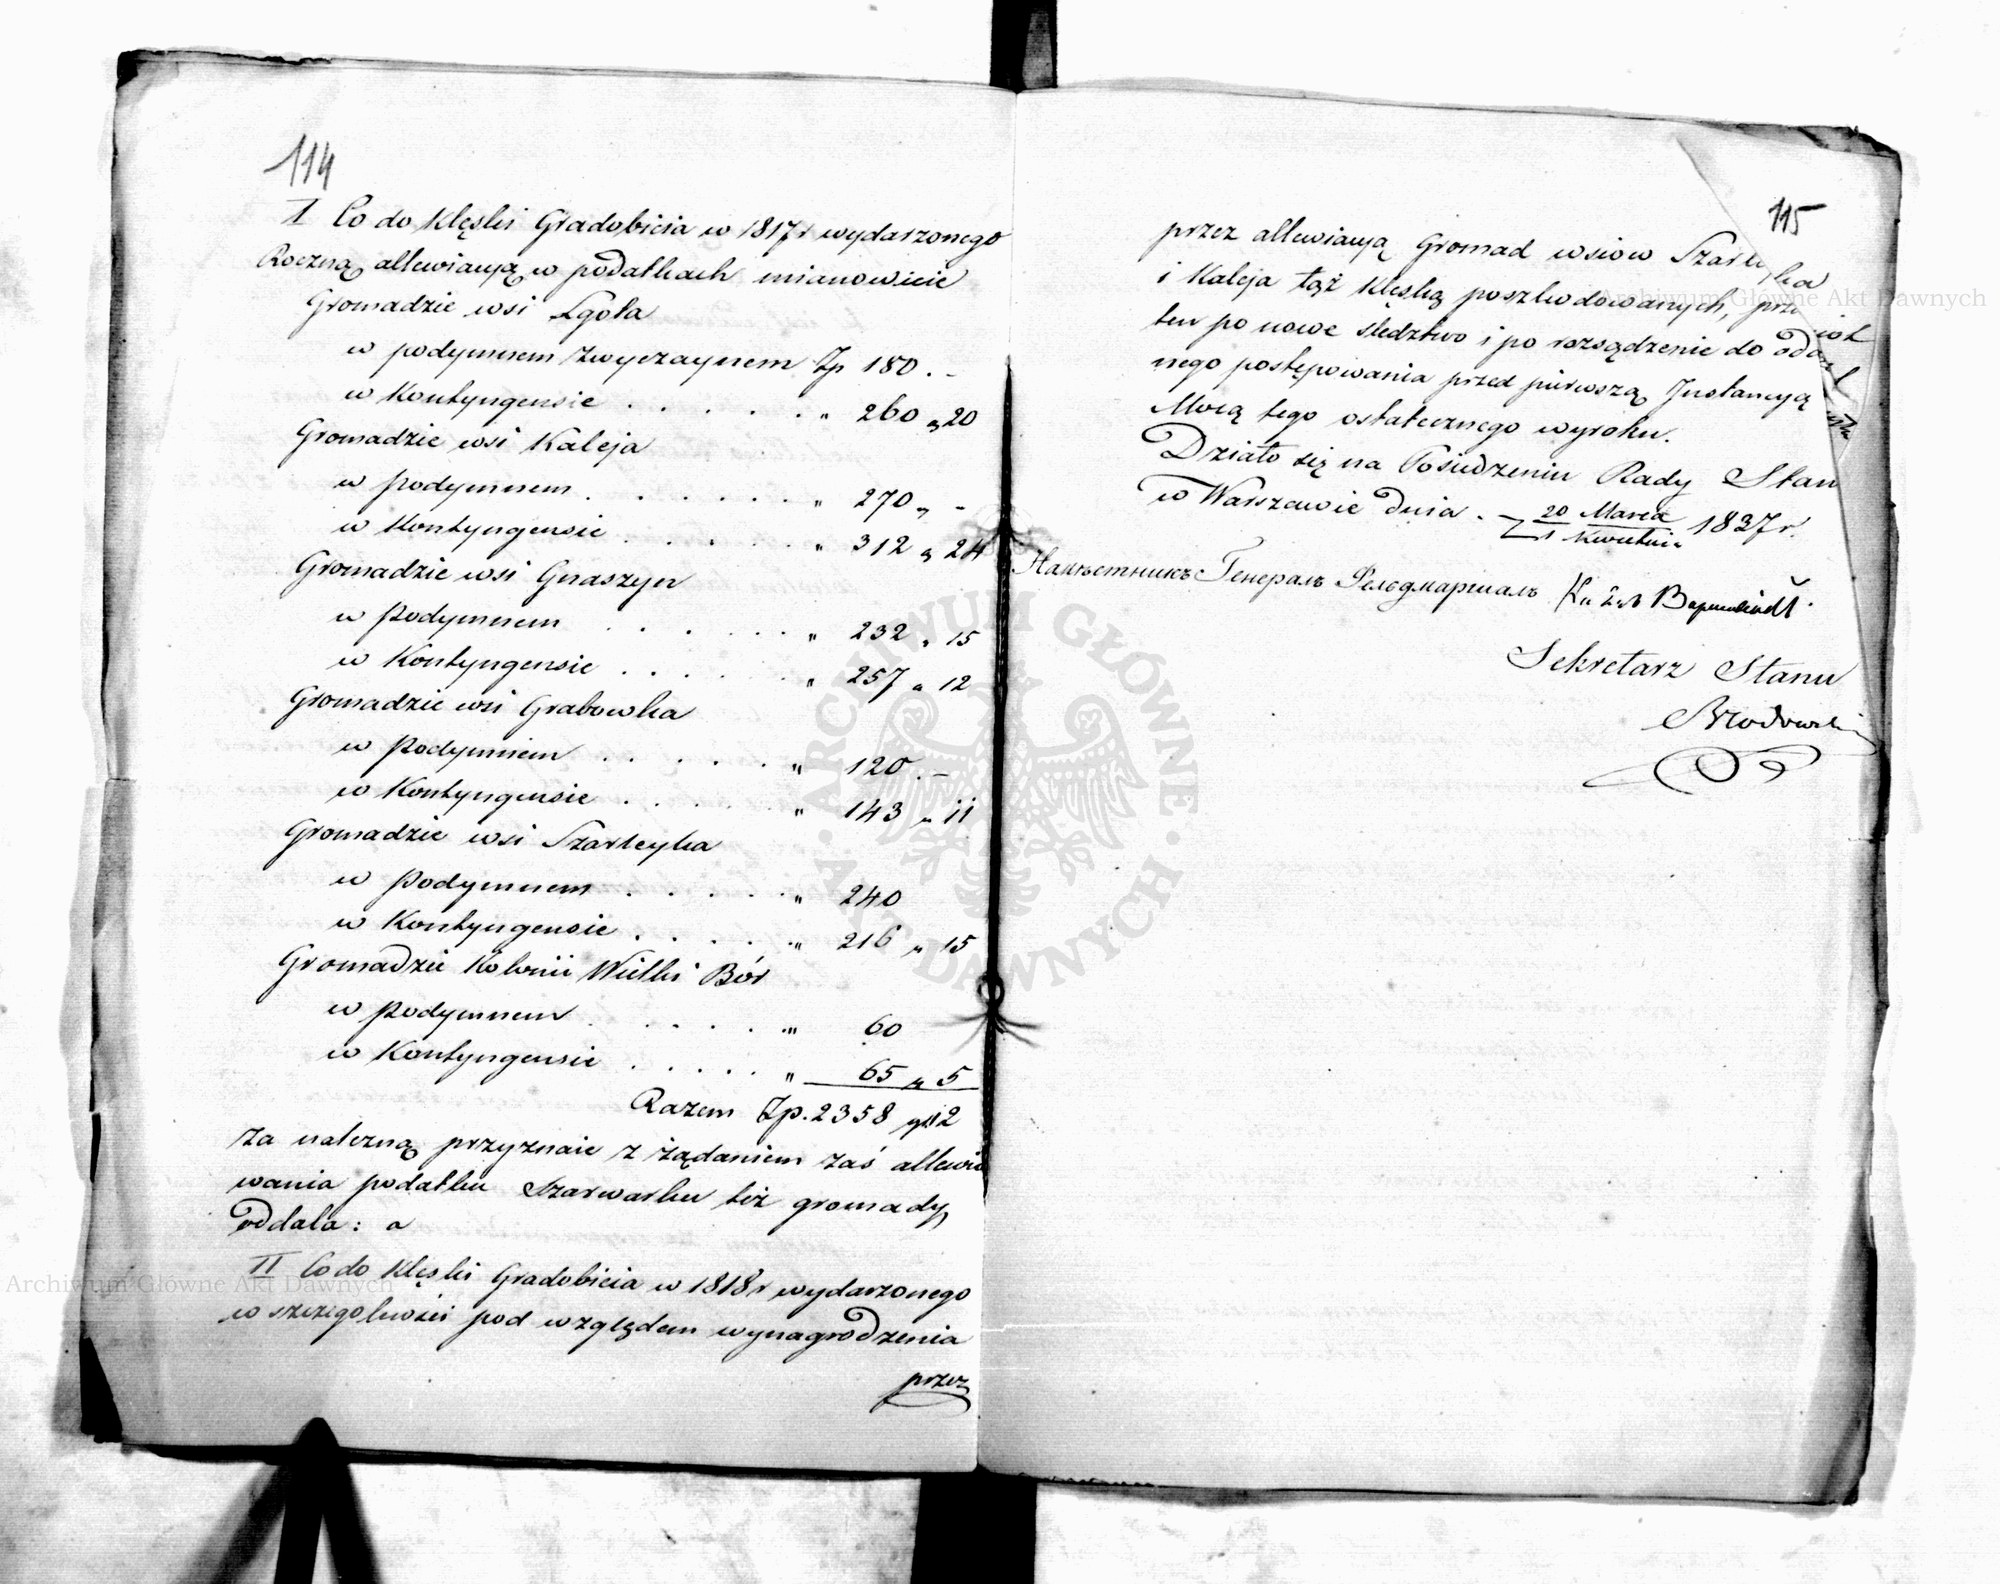 114
I Co do Klęski Gradobicia w 1817 r wydarzonego
Roczną allewiacyą w podatkach mianowicie
Gromadzie wsi Lgota
w podymnem zwyczaynem Zp 180 . -
w Kontyngensie . . . . . . " 260 " 20
Gromadzie wsi Kaleja
w podymnem . . . . . . " 270 " -
w Kontyngensie . . . . . " 312 " 24
Gromadzie wsi Gnaszyn
w Podymnem . . . . . . " 232 " 15
w Kontyngensie . . . . . " 257 " 12
Gromadzie wsi Grabowka
w Podymnem . . . . . " 120 . -
w Kontyngensie . . . . . " 143 " 11
Gromadzie wsi Szarleyka
w Podymnem . . . . . " 240
w Kontyngensie . . . . . " 216 " 15
Gromadzie Kolonii Wielki Bór
w Podymnem . . . . . " 60
w Kontyngensie . . . . . " 65 " 5
Razem Zp. 2358 gr 12
za należną przyznaie z żądaniem zaś allewio
wania podatku Szarwarku też gromady
oddala: a
II Co do Klęski Gradobicia w 1818 r wydarzonego
w szczególności pod względem wynagrodzenia
przez
115
przez allewiacyą Gromad wsiow Szarleyka
i Kaleja tąż Klęską poszkodowanych,
ten po nowe śledztwo i po rozsądzenie do
nego postępowania przed pierwszą Instancyą
Mocą tego ostatecznego wyroku.
Działo się na Posiedzeniu Rady Stanu
w Warszawie dnia 20 Marca / 1 Kwietnia 1837 r.
Намѣстникъ Генералъ Фельдмаршалъ Князь Варшавскій
Sekretarz Stanu
Brodowski
Archiwum Główne Akt Dawnych
Archiwum Główne Akt Dawnych
ARCHIWUM GŁÓWNE AKT DAWNYCH